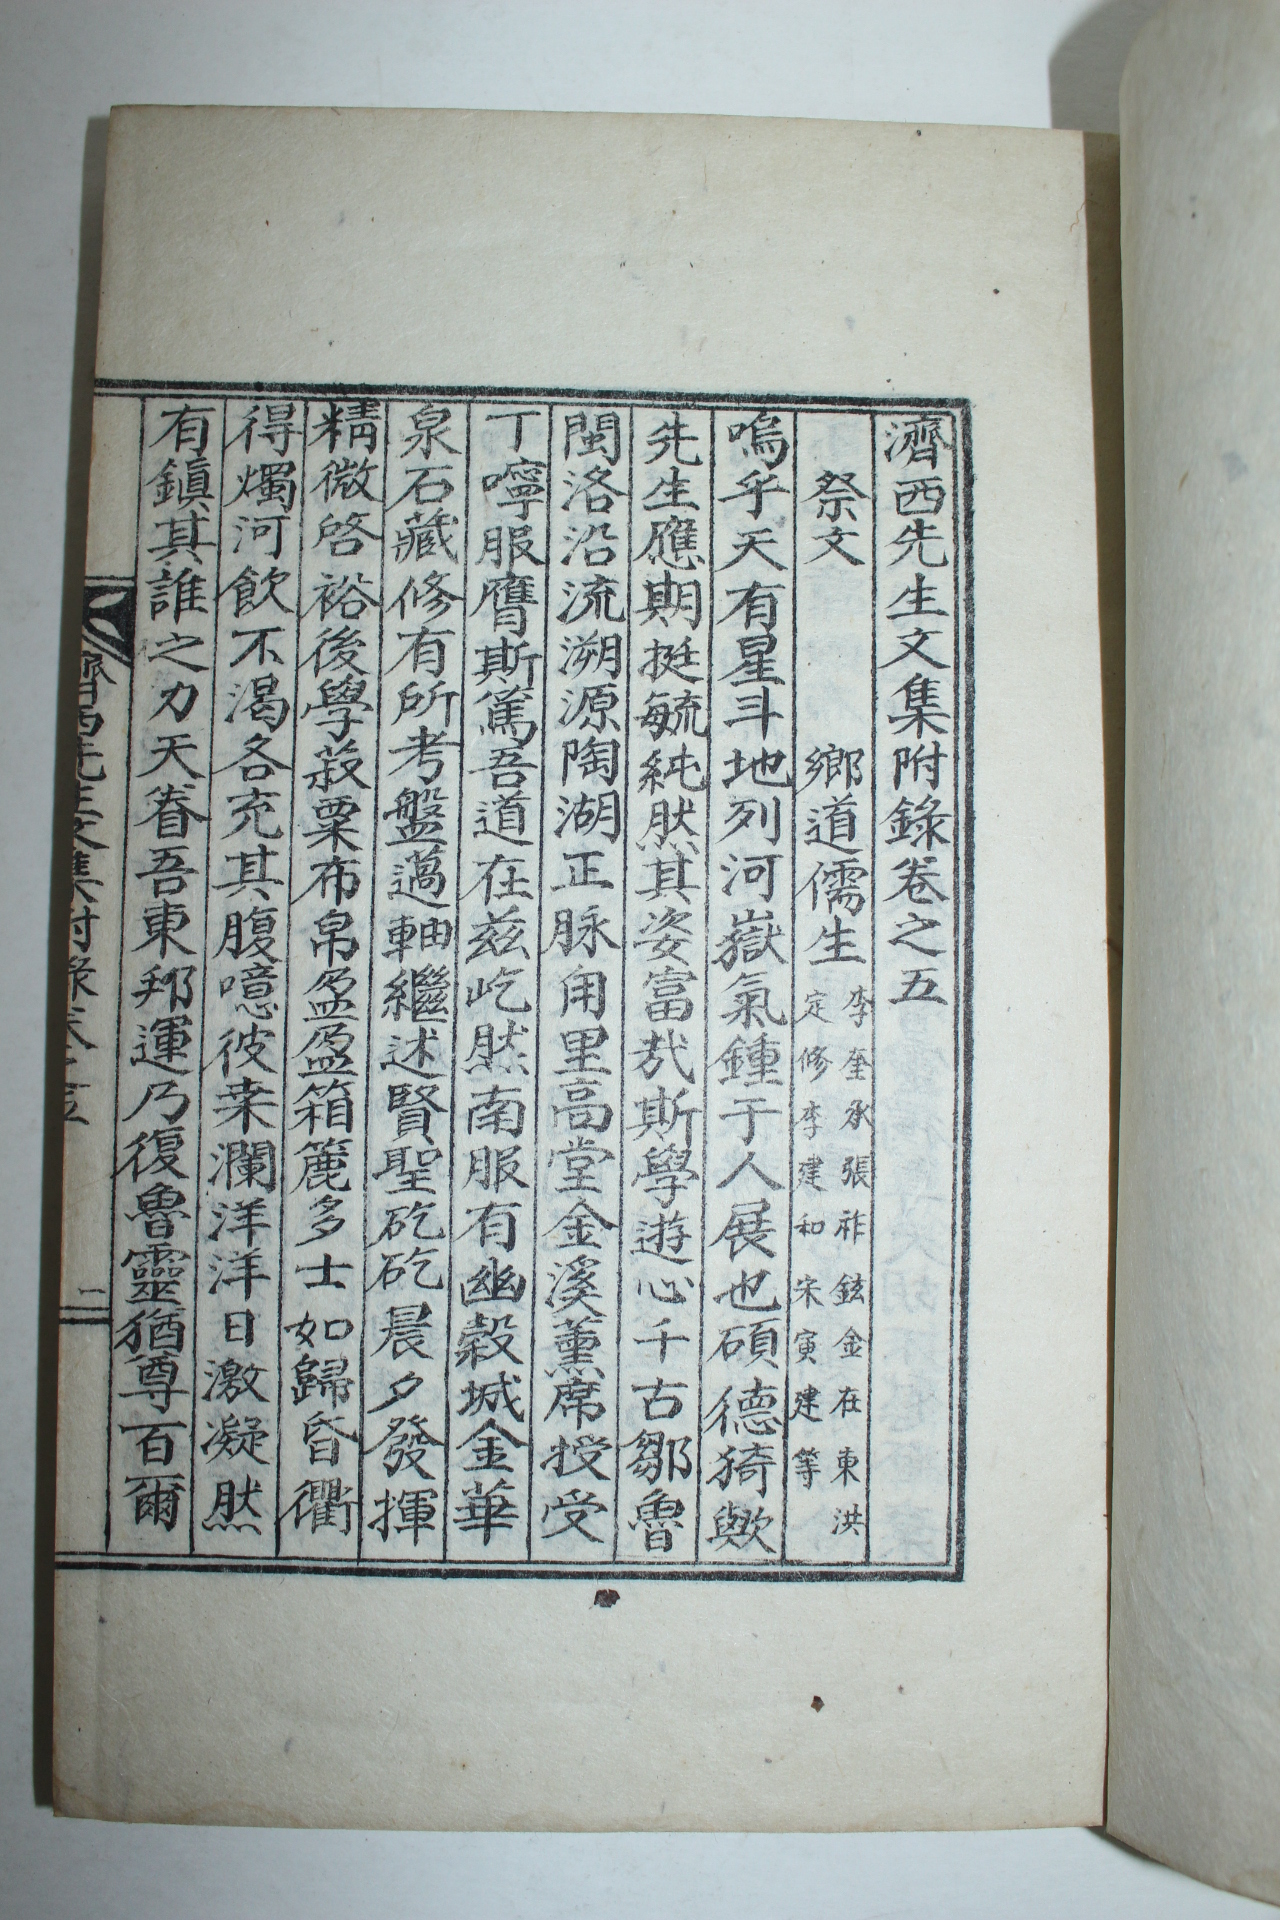 濟西先生文集附錄卷之五
祭文
鄉道儒生李奎承張祚鉉金在東洪
定修李建和宋寅建等
嗚乎天有星斗地列河嶽氣鍾于人展也碩德猗歟
先生應期挺毓純然其姿富哉斯學遊心千古鄒魯
閩洛沿流溯源陶湖正脉甪里高堂金溪薰席授受
丁嚀服膺斯篤吾道在玆屹然南服有幽穀城金華
泉石藏修有所考盤薖軸繼述賢聖矻矻晨夕發揮
精微啓裕後學菽粟布帛盈盈箱簏多士如歸昏衢
得燭河飮不渴各充其腹噫彼桒瀾洋洋日激凝然
有鎭其誰之力天眷吾東邦運乃復魯靈猶尊百爾
濟西先生文集附錄卷之五
一